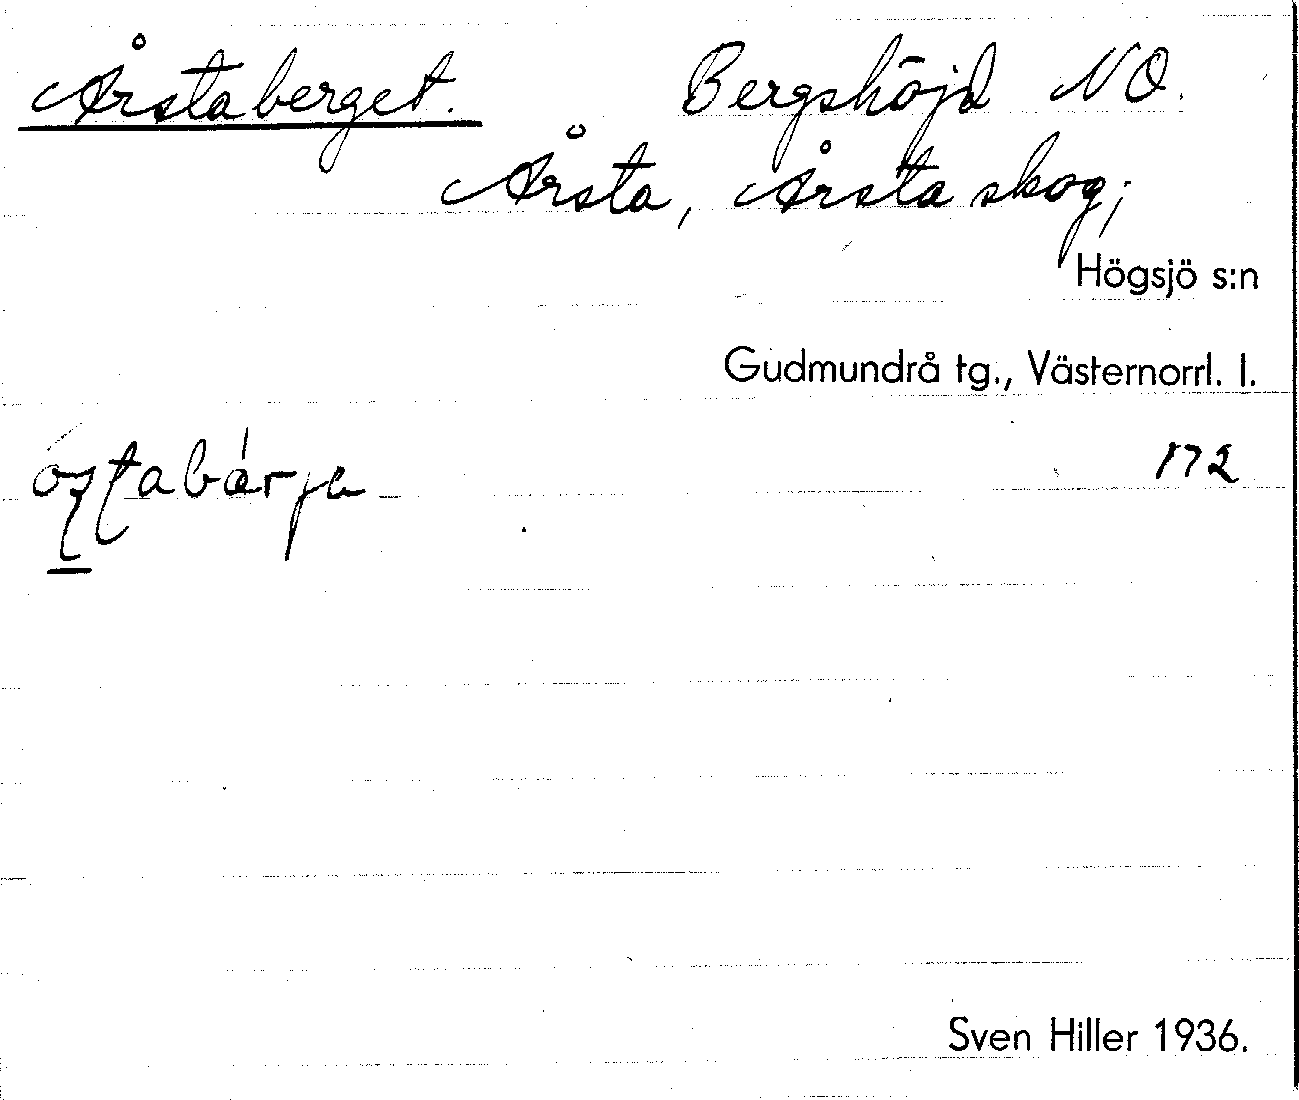 Årstaberget. Bergshöjd NO.
Årsta, Årsta skog;
Högsjö s:n
Gudmundrå tg., Västernorrl. l.
172
Sven Hiller 1936.